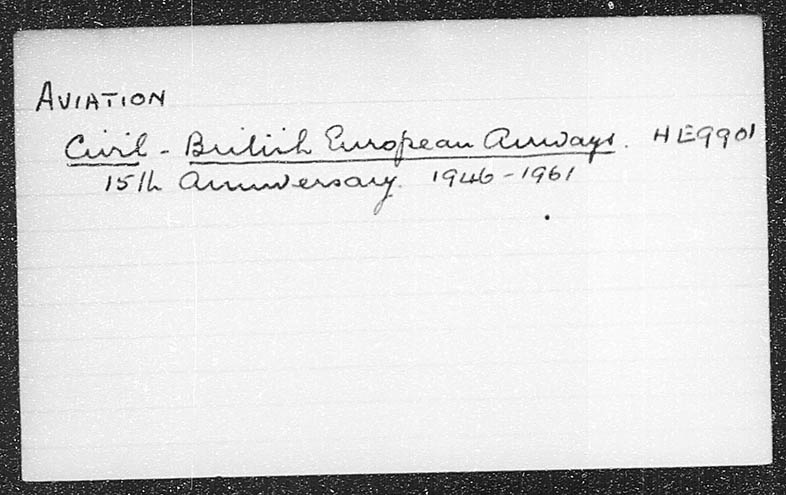 AVIATION
Civil - British European Airways. HE9901
15th Anniversary. 1946-1961